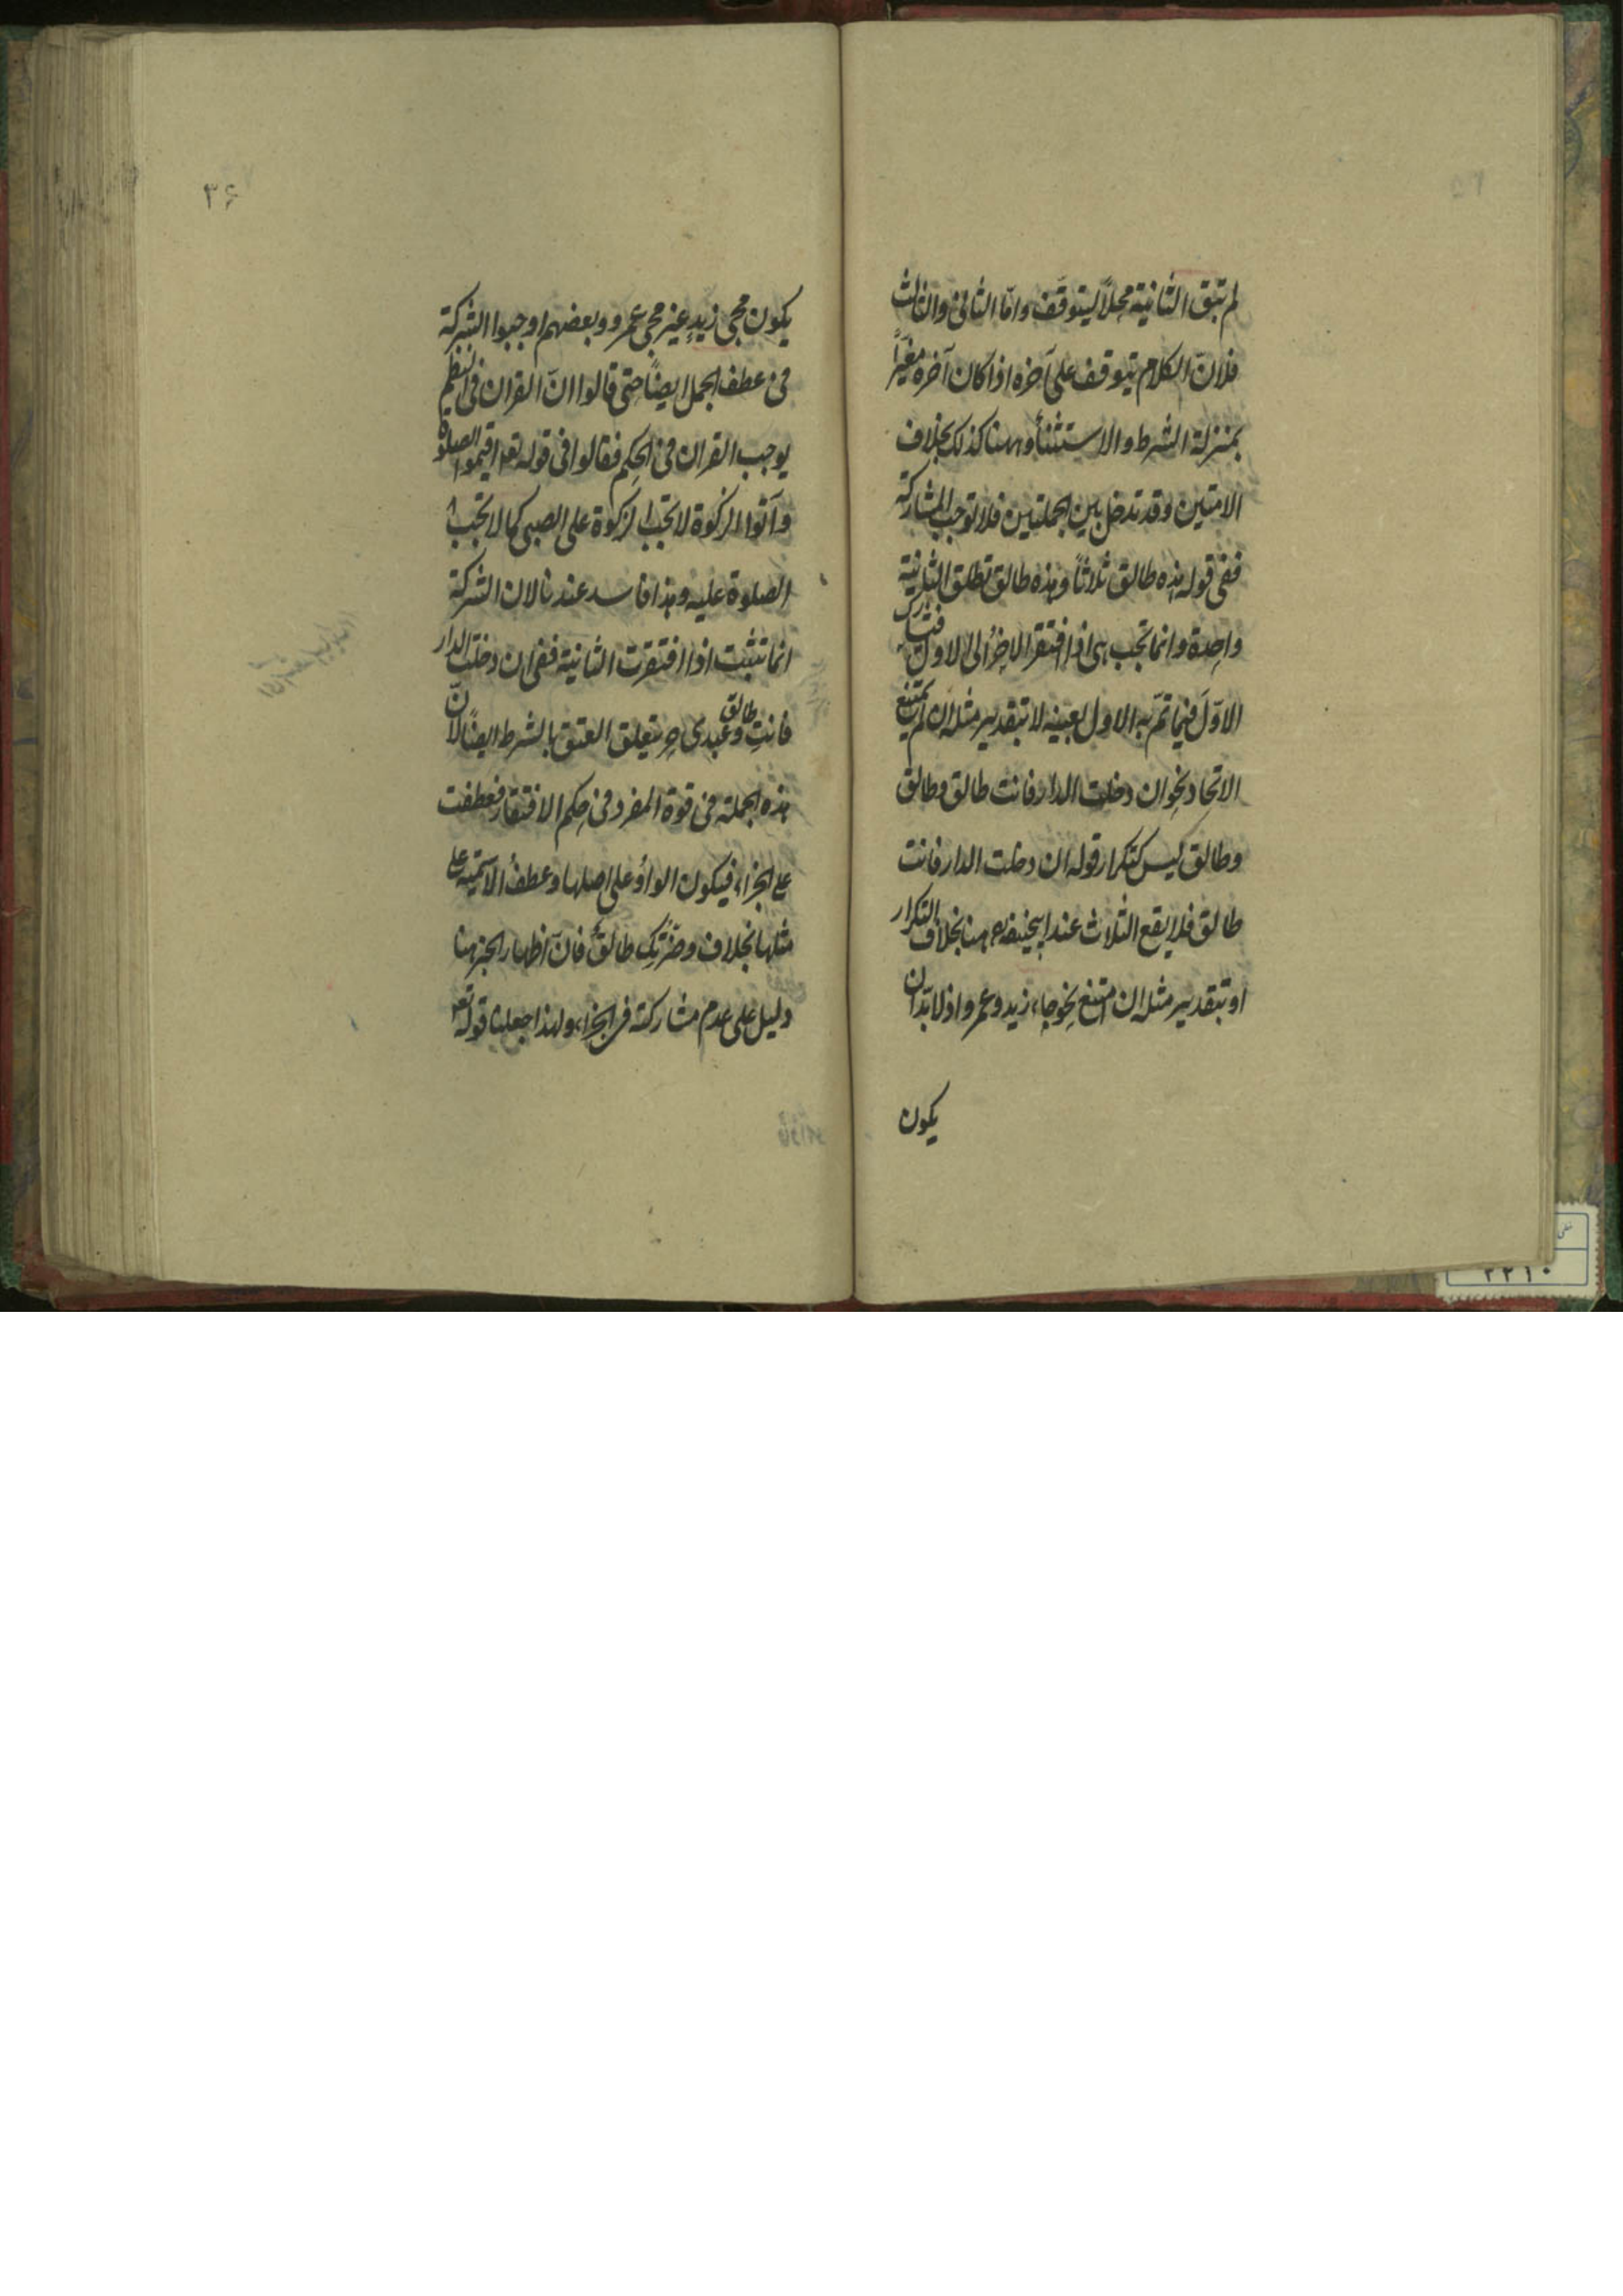 لم تبق الثانية محلاً ليتوقف وامّا الثانى والثالث
فلانّ الكلام يتوقف على آخره اذا كان آخره مغيّراً
بمنزلة الشرط والاستثناء وههنا كذلك بخلاف
الامتين وقد تدخل بين الجملتين فلا توجب المشاركة
ففى قوله هذه طالق ثلاثاً وهذه طالق تطلق الثانية
واحدة وانما تجب هى اذا افتقر الاخر الى الاول فتشارك
الاوّل فيما تمّ به الاول بعينه لا بتقدير مثله ان لم يمتنع
الاتحاد نحو ان دخلت الدار فانت طالق وطالق
وطالق ليس كتكرار قوله ان دخلت الدار فانت
طالق فلا يقع الثلاث عند ابيحنيفة رح ههنا بخلاف التكرار
او بتقدير مثله ان امتنع نحو جاء زيد وعمرو اذ لا بدّ ان
يكون
۳۶
يكون مجئ زيدٍ غير مجئ عمرو وبعضهم اوجبوا الشركة
فى عطف الجمل ايضاً حتى قالوا انّ القران فى النظم
يوجب القران فى الحكم فقالوا فى قوله تع اقيموا الصلوة
وآتوا الزكوة لا تجب الزكوة على الصبى كما لا تجب
الصلوة عليه وهذا فاسد عندنا لان الشركة
انما تثبت اذا افتقرت الثانية ففى ان دخلت الدار
فانتِ طالق وعبدى حر يتعلق العتق بالشرط ايضاً لانّ
هذه الجملة فى قوة المفرد فى حكم الافتقار فعطفت
على الجزاء فيكون الواو على اصلها وعطف الاسمية على
مثلها بخلاف وضرّتكِ طالقٌ فانّ اظهار الخبر هنا
دليل على عدم مشاركته فى الجزاء ولهذا جعلنا قوله تع
۲۲۱۰